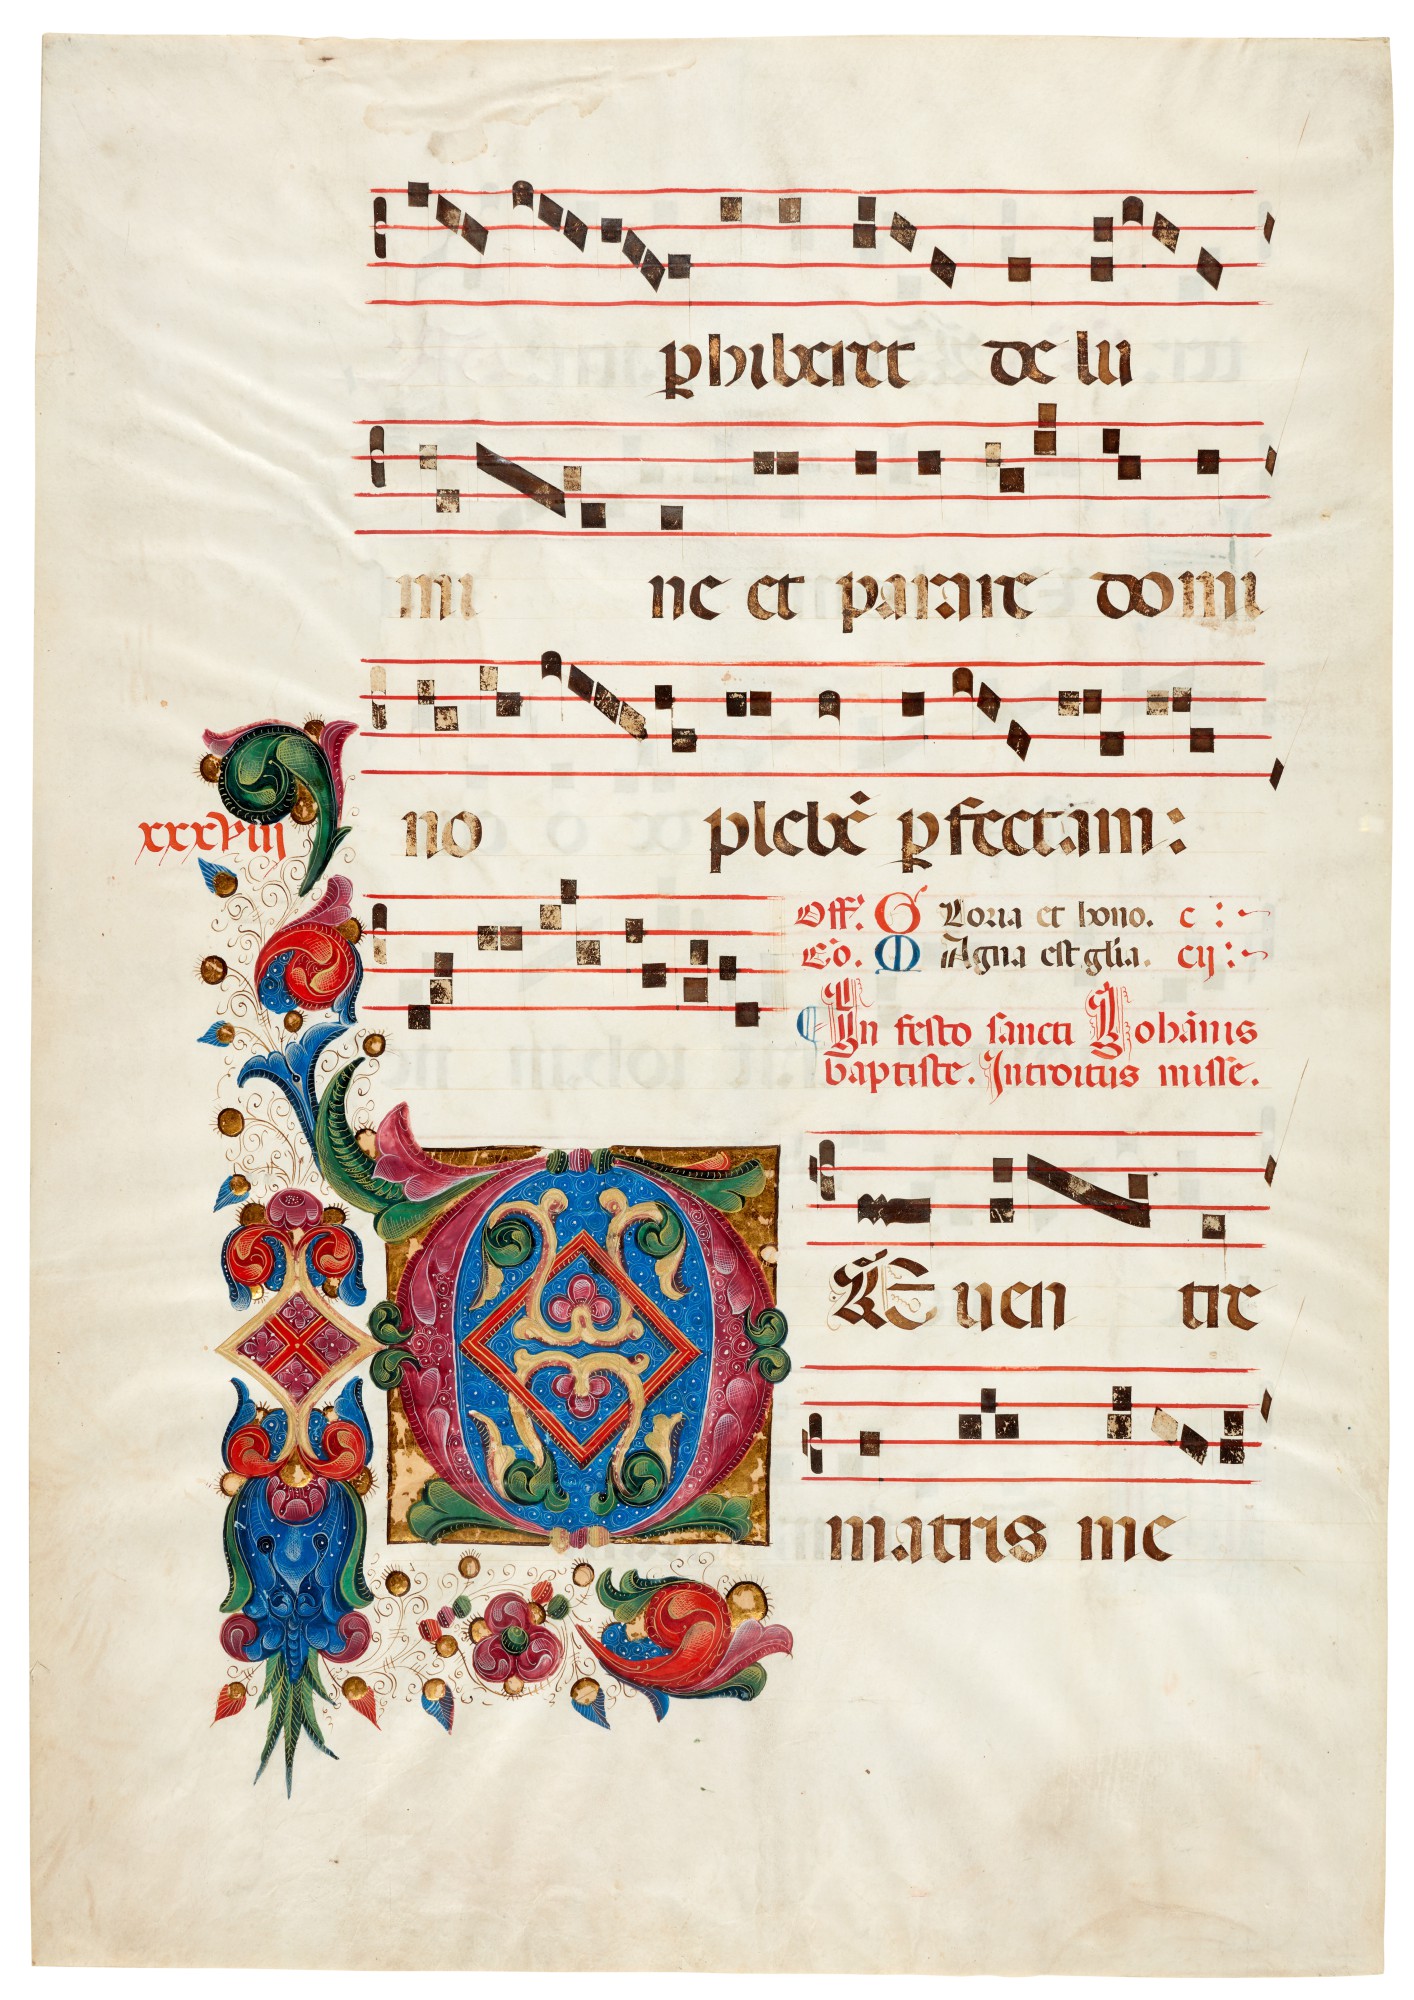 phiberet de lu
mi ne et parare domi
no plebē pfectam:
xxxviii
Off. G Loria et hono. c :
Cō. M Agna est glia. cij :
In festo sancti Iohānis
baptiste. Introitus misse.
DE uen tre
matris me